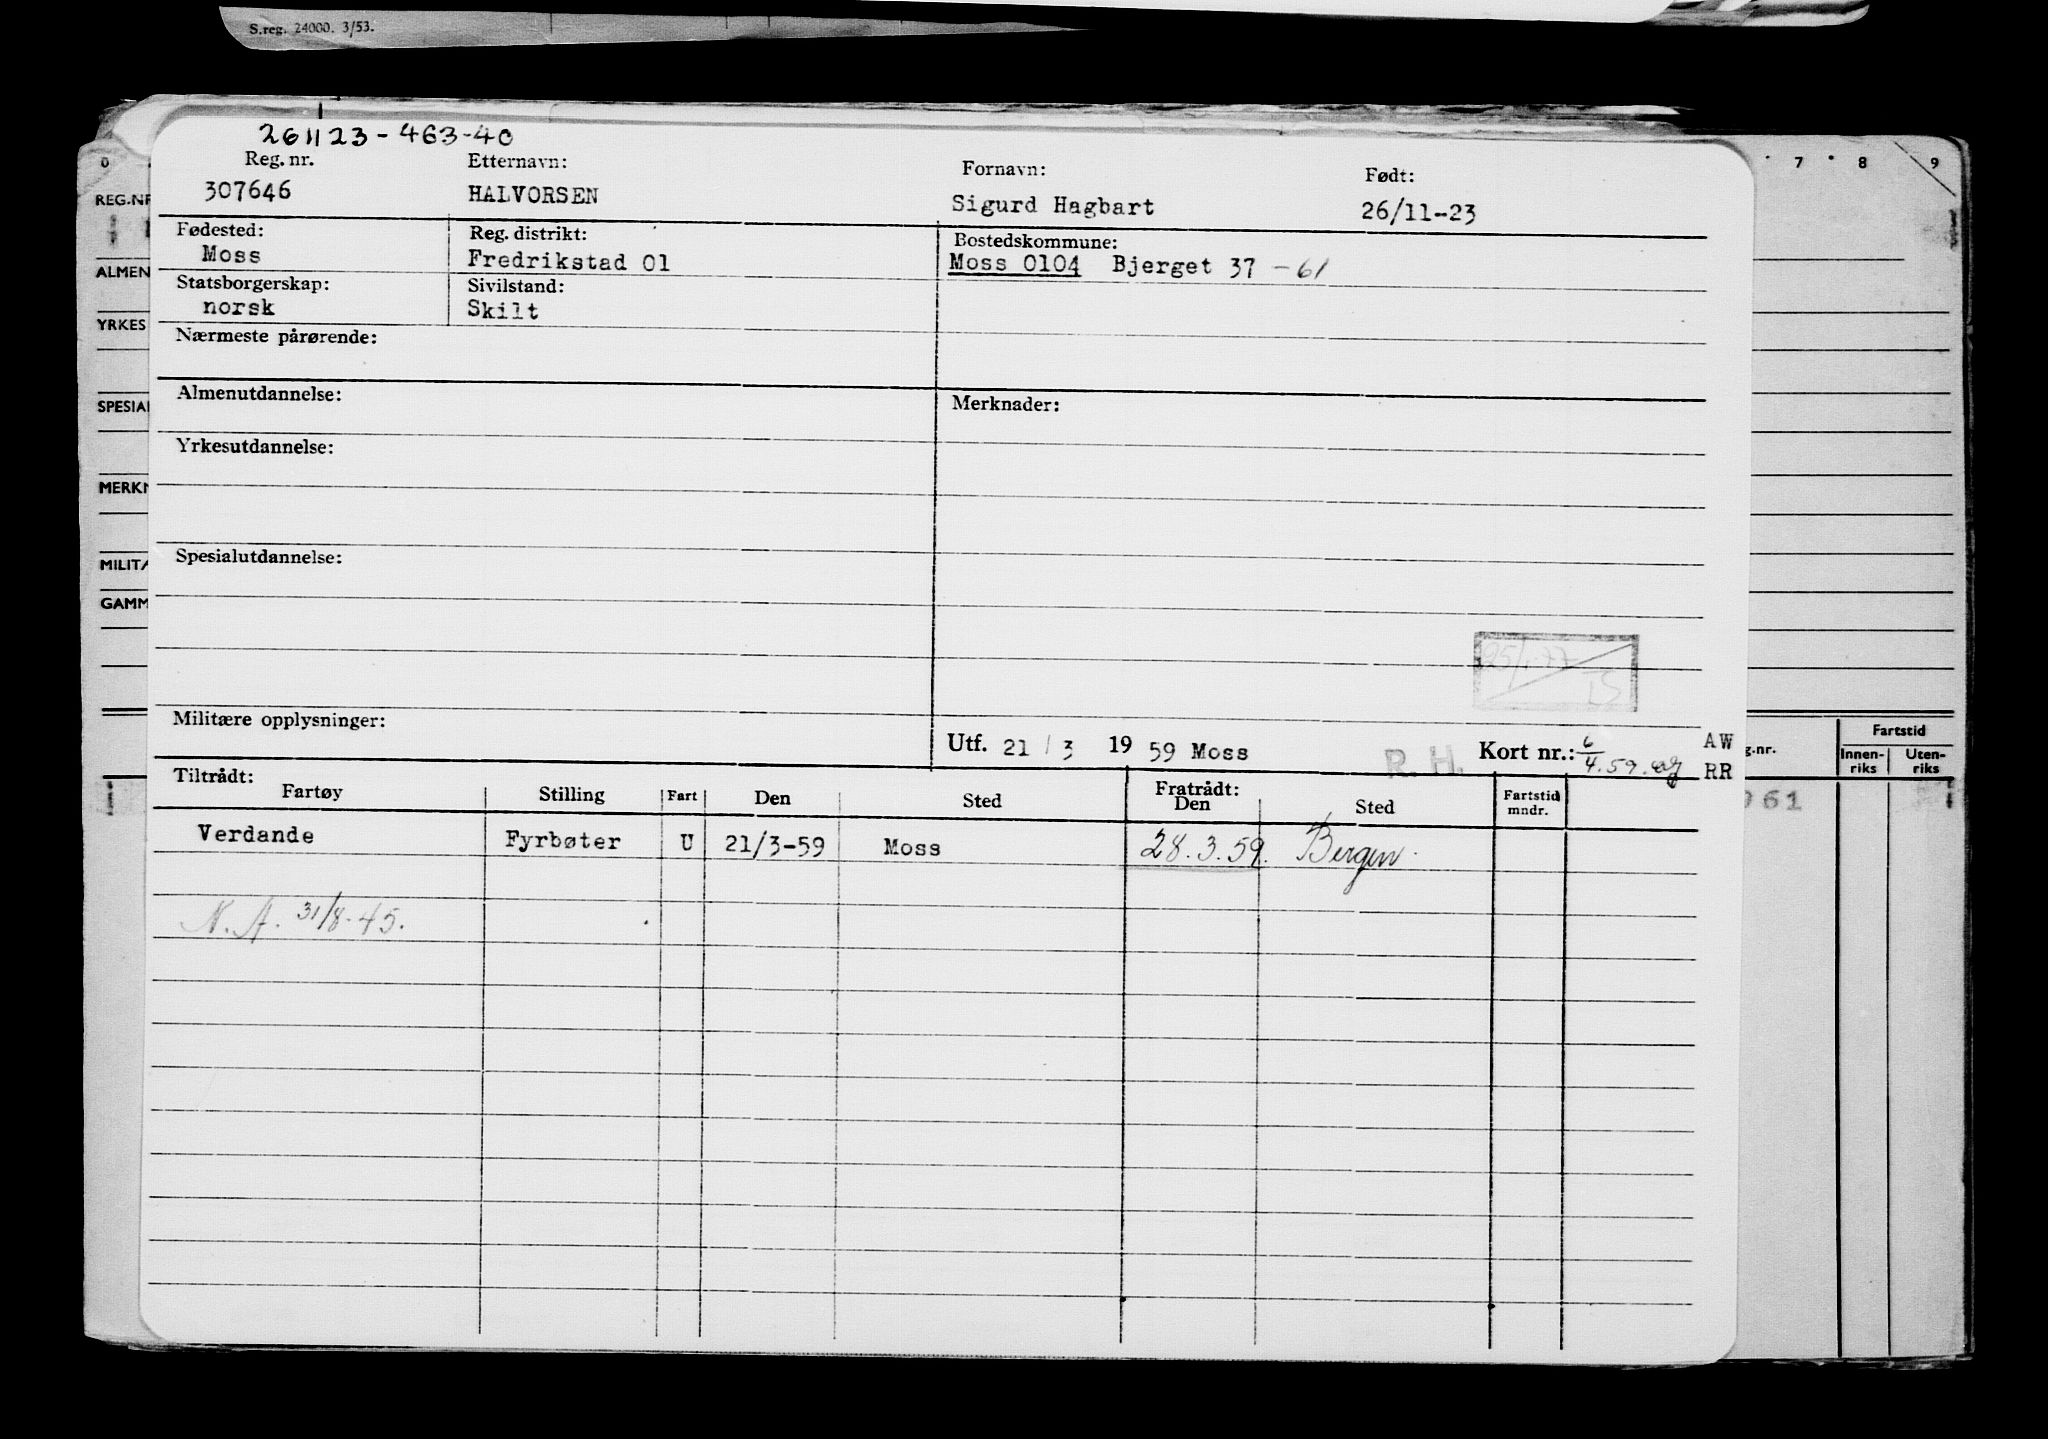 S.reg. 24000. 3/53.
261123-463-40
Reg. nr. Etternavn: Fornavn: Født:
307646 HALVORSEN Sigurd Hagbart 26/11-23
Fødested: Reg. distrikt: Bostedskommune:
Moss Fredrikstad 01 Moss 0104 Bjerget 37 - 61
Statsborgerskap: Sivilstand:
norsk Skilt
Nærmeste pårørende:
Almenutdannelse: Merknader:
Yrkesutdannelse:
Spesialutdannelse:
25/1-77
IS
Militære opplysninger:
Utf. 21 / 3 19 59 Moss R. H. Kort nr.: 6/4.59. AW
RR
Tiltrådt: Fratrådt:
Fartøy Stilling Fart Den Sted Den Sted Fartstid mndr.
Verdande Fyrbøter U 21/3-59 Moss 28.3.59. Bergen.
N. A. 31/8-45.
0 7 8 9
REG.NR
ALMEN
YRKES
SPESIAL
MERKN
MILITÆ
GAMM
g.nr. Fartstid
Innen-riks Uten-riks
961